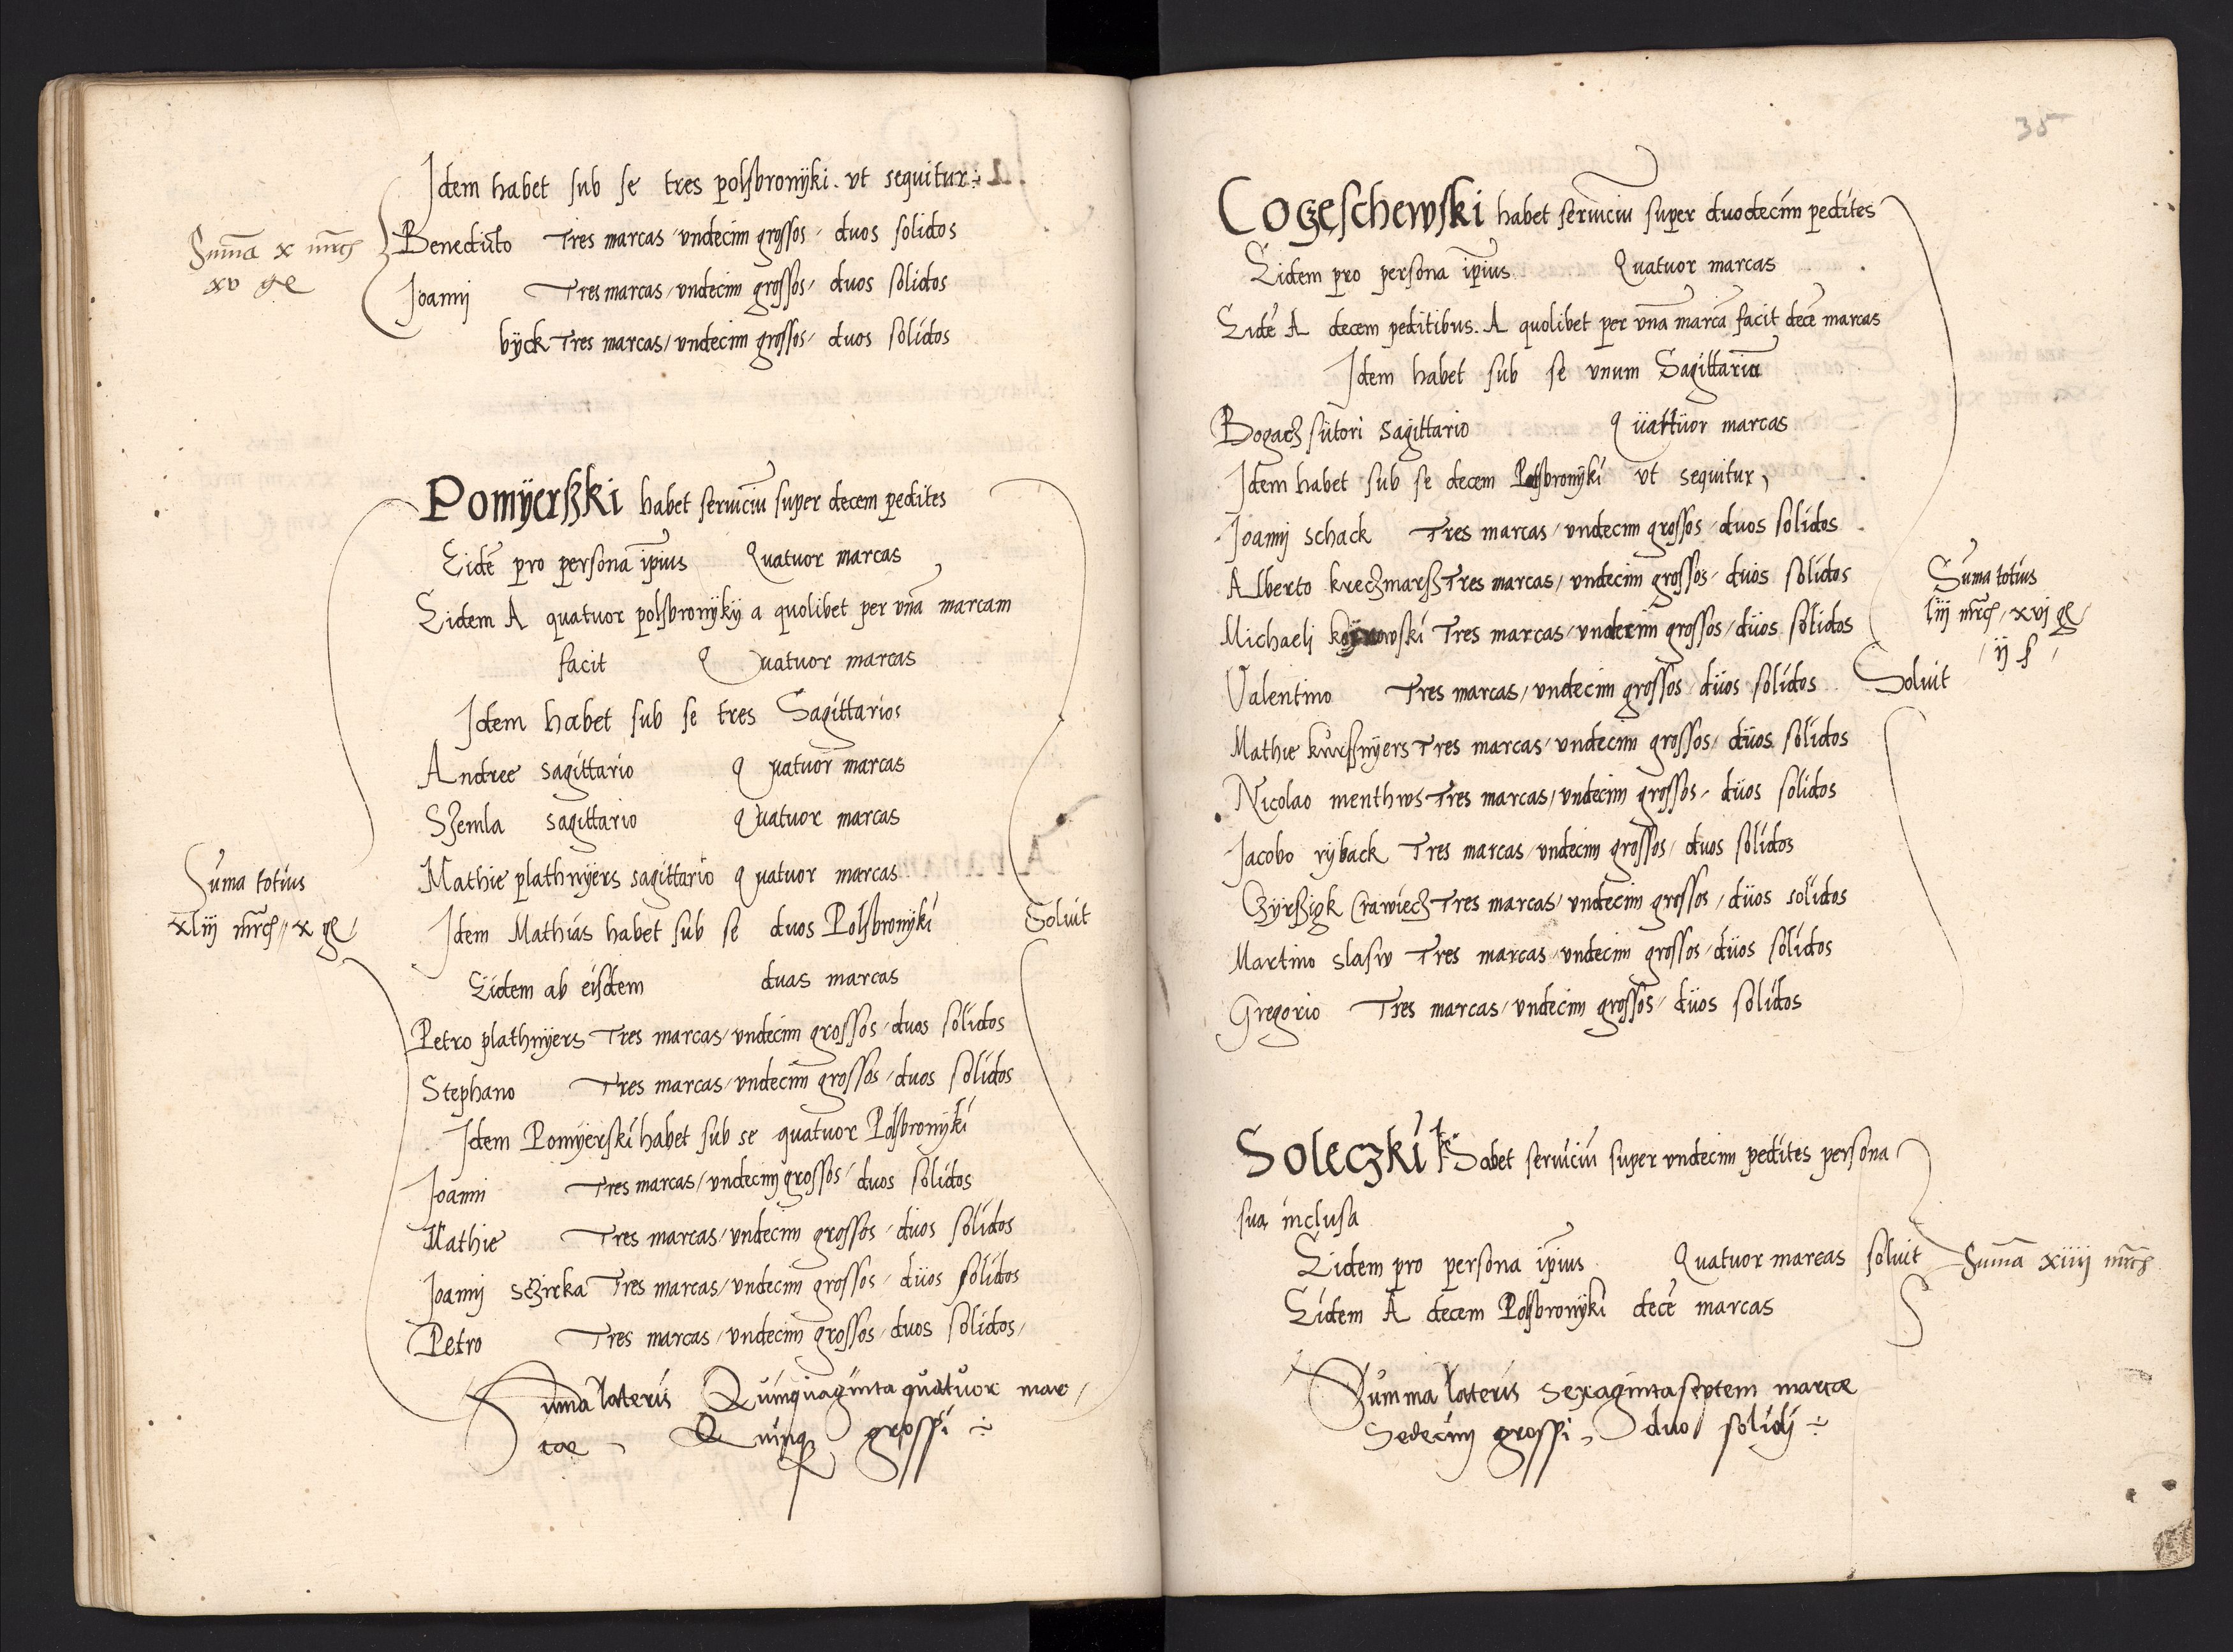 Idem habet sub se tres polsbronÿki. vt sequitur
Sum̄a x mrc̄
xv gr
Benedicto Tres marcas / vndecim grossos / duos solidos
Joanni Tres marcas / vndecim grossos / duos solidos
bÿck Tres marcas / vndecim grossos / duos solidos
Pomÿerski habet seruiciū super decem pedites
Eidē pro persona ip̄ius Quatuor marcas
Eidem A quatuor polsbronÿkÿ a quolibet per vnā marcam
facit Quatuor marcas
Idem habet sub se tres Sagittarios
Andree sagittario quatuor marcas
Szemla sagittario Quatuor marcas
Mathie plathnÿers sagittario quatuor marcas
Suma totius
xliij mrc̄ / x gr /
Idem Mathias habet sub se duos Polsbronÿki
Soluit
Eidem ab eisdem duas marcas
Petro plathnÿers Tres marcas / vndecim grossos / duos solidos
Stephano Tres marcas / vndecim grossos / duos solidos
Idem Pomÿerski habet sub se quatuor Polsbronÿki
Joanni Tres marcas / vndecim grossos / duos solidos
Mathie Tres marcas / vndecim grossos / duos solidos
Joanni sczirka Tres marcas / vndecim grossos / duos solidos
Petro Tres marcas / vndecim grossos / duos solidos /
Suma lateris Quinquaginta quatuor mar /
cae, Quinq3 grossi
35
Cogeschewski habet seruiciū super duodecim pedites
Eidem pro persona ip̄ius Quatuor marcas
Eidē A decem peditibus. A quolibet per vnā marcā facit decē marcas
Idem habet sub se vnum Sagittariū
Bogacz sutori sagittario Quattuor marcas
Idem habet sub se decem Polsbronÿki vt sequitur,
Joanni schack Tres marcas / vndecim grossos / duos solidos
Alberto kreczmars Tres marcas / vndecim grossos / duos solidos
Suma totius
liij mrc̄ / xvj gr /
/ ij s /
Michaeli Tres marcas / vndecim grossos / duos solidos
Valentino Tres marcas / vndecim grossos / duos solidos
Soluit
Mathie kursnÿers Tres marcas / vndecim grossos / duos solidos
Nicolao menthws Tres marcas / vndecim grossos / duos solidos
Jacobo rÿback Tres marcas / vndecim grossos / duos solidos
Czÿrzigk Crawiecz Tres marcas / vndecim grossos / duos solidos
Martino slasw Tres marcas / vndecim grossos / duos solidos
Gregorio Tres marcas / vndecim grossos / duos solidos
Soleczki Habet seruiciū super vndecim pedites persona
sua inclusa
Eidem pro persona ip̄ius Quatuor marcas soluit
Sum̄a xiiij mrc̄
Eidem A decem Polsbronÿki decē marcas
Summa lateris sexaginta septem marcae
Sedecim grossi, duo solidj